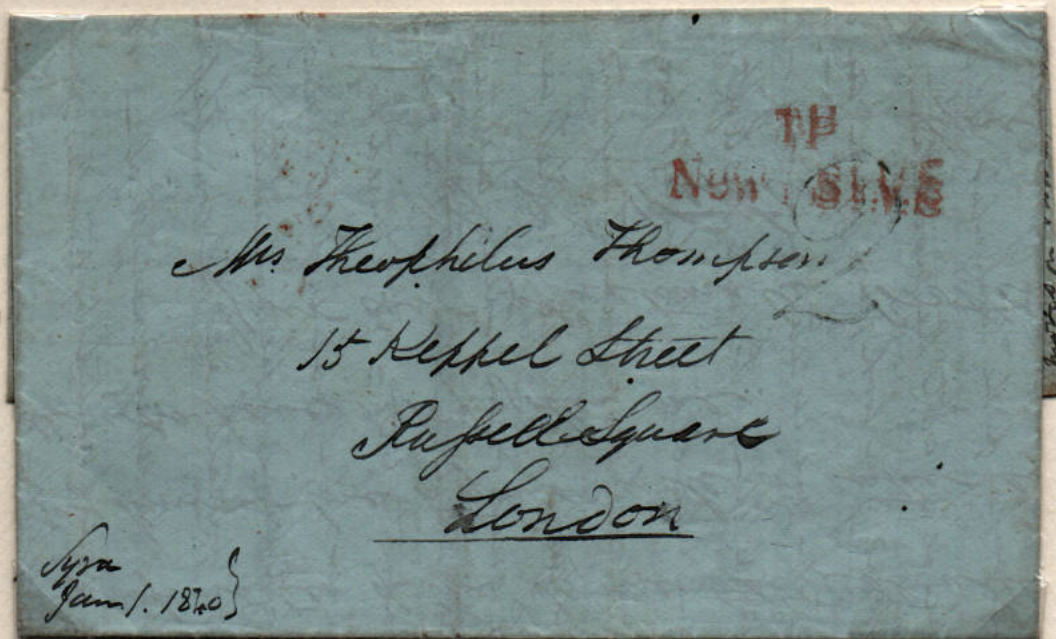 TP
New
Mrs. Theophilus Thompson
15 Keppel Street
Russell Square
London
Syra
Jan 1. 1840